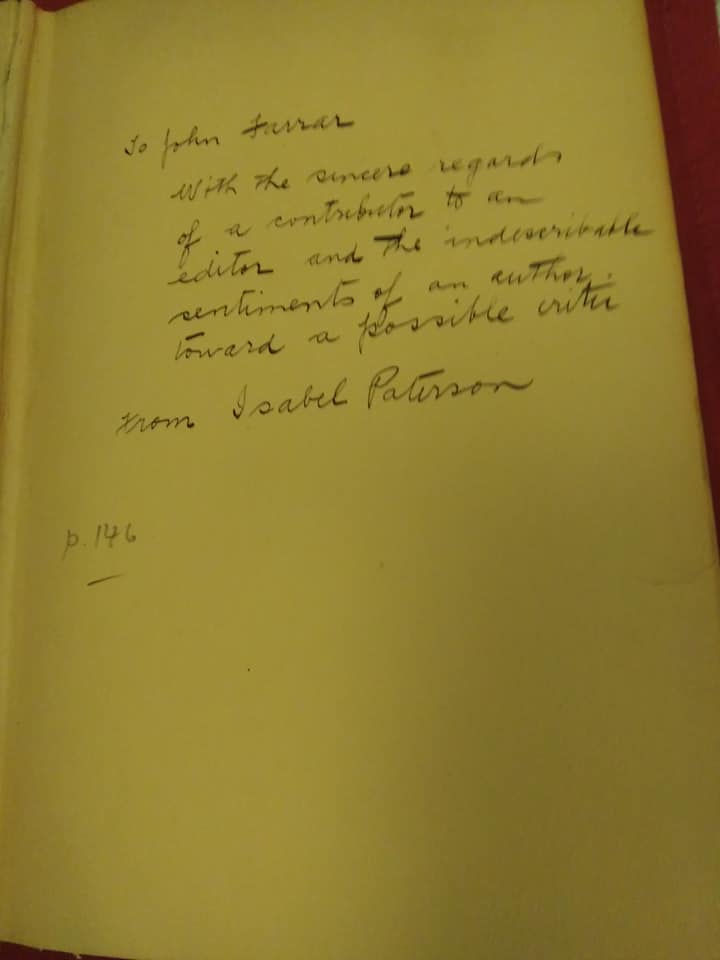 To John Farrar
With the sincere regards
of a contributor to an
editor and the indescribable
sentiments of an author
toward a possible critic
From Isabel Paterson
p. 146